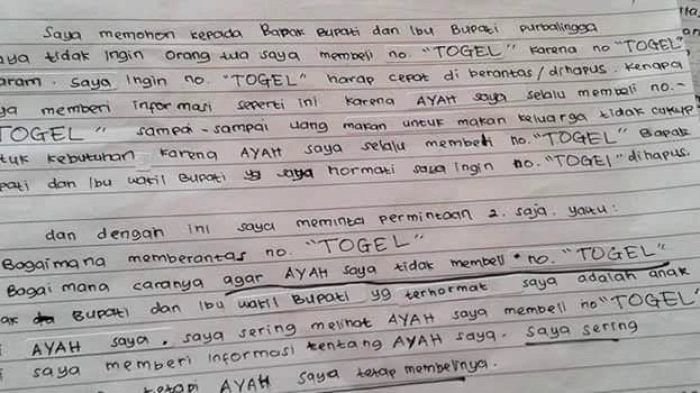 Saya memohon kepada Bapak Bupati dan Ibu Bupati purbalingga
aya tidak ingin orang tua saya membeli no. "TOGEL" karena no "TOGEL"
aram. saya ingin no. "TOGEL" harap cepat di berantas/dihapus. kenapa
ya memberi informasi seperti ini karena AYAH saya selalu membeli no.-
TOGEL" sampai-sampai uang makan untuk makan keluarga tidak cukup
tuk kebutuhan karena AYAH saya selalu membeli no. "TOGEL" Bapak
pati dan Ibu wakil Bupati yg saya hormati saya ingin no. "TOGEL" dihapus.
dan dengan ini saya meminta permintaan 2. saja. yaitu:
Bagaimana memberantas no. "TOGEL"
Bagai mana caranya agar AYAH saya tidak membeli no. "TOGEL"
ak Bupati dan Ibu wakil Bupati yg terhormat saya adalah anak
i AYAH saya. saya sering melihat AYAH saya membeli no "TOGEL"
saya memberi informasi tentang AYAH saya. saya sering
tetapi AYAH saya tetap membelinya.